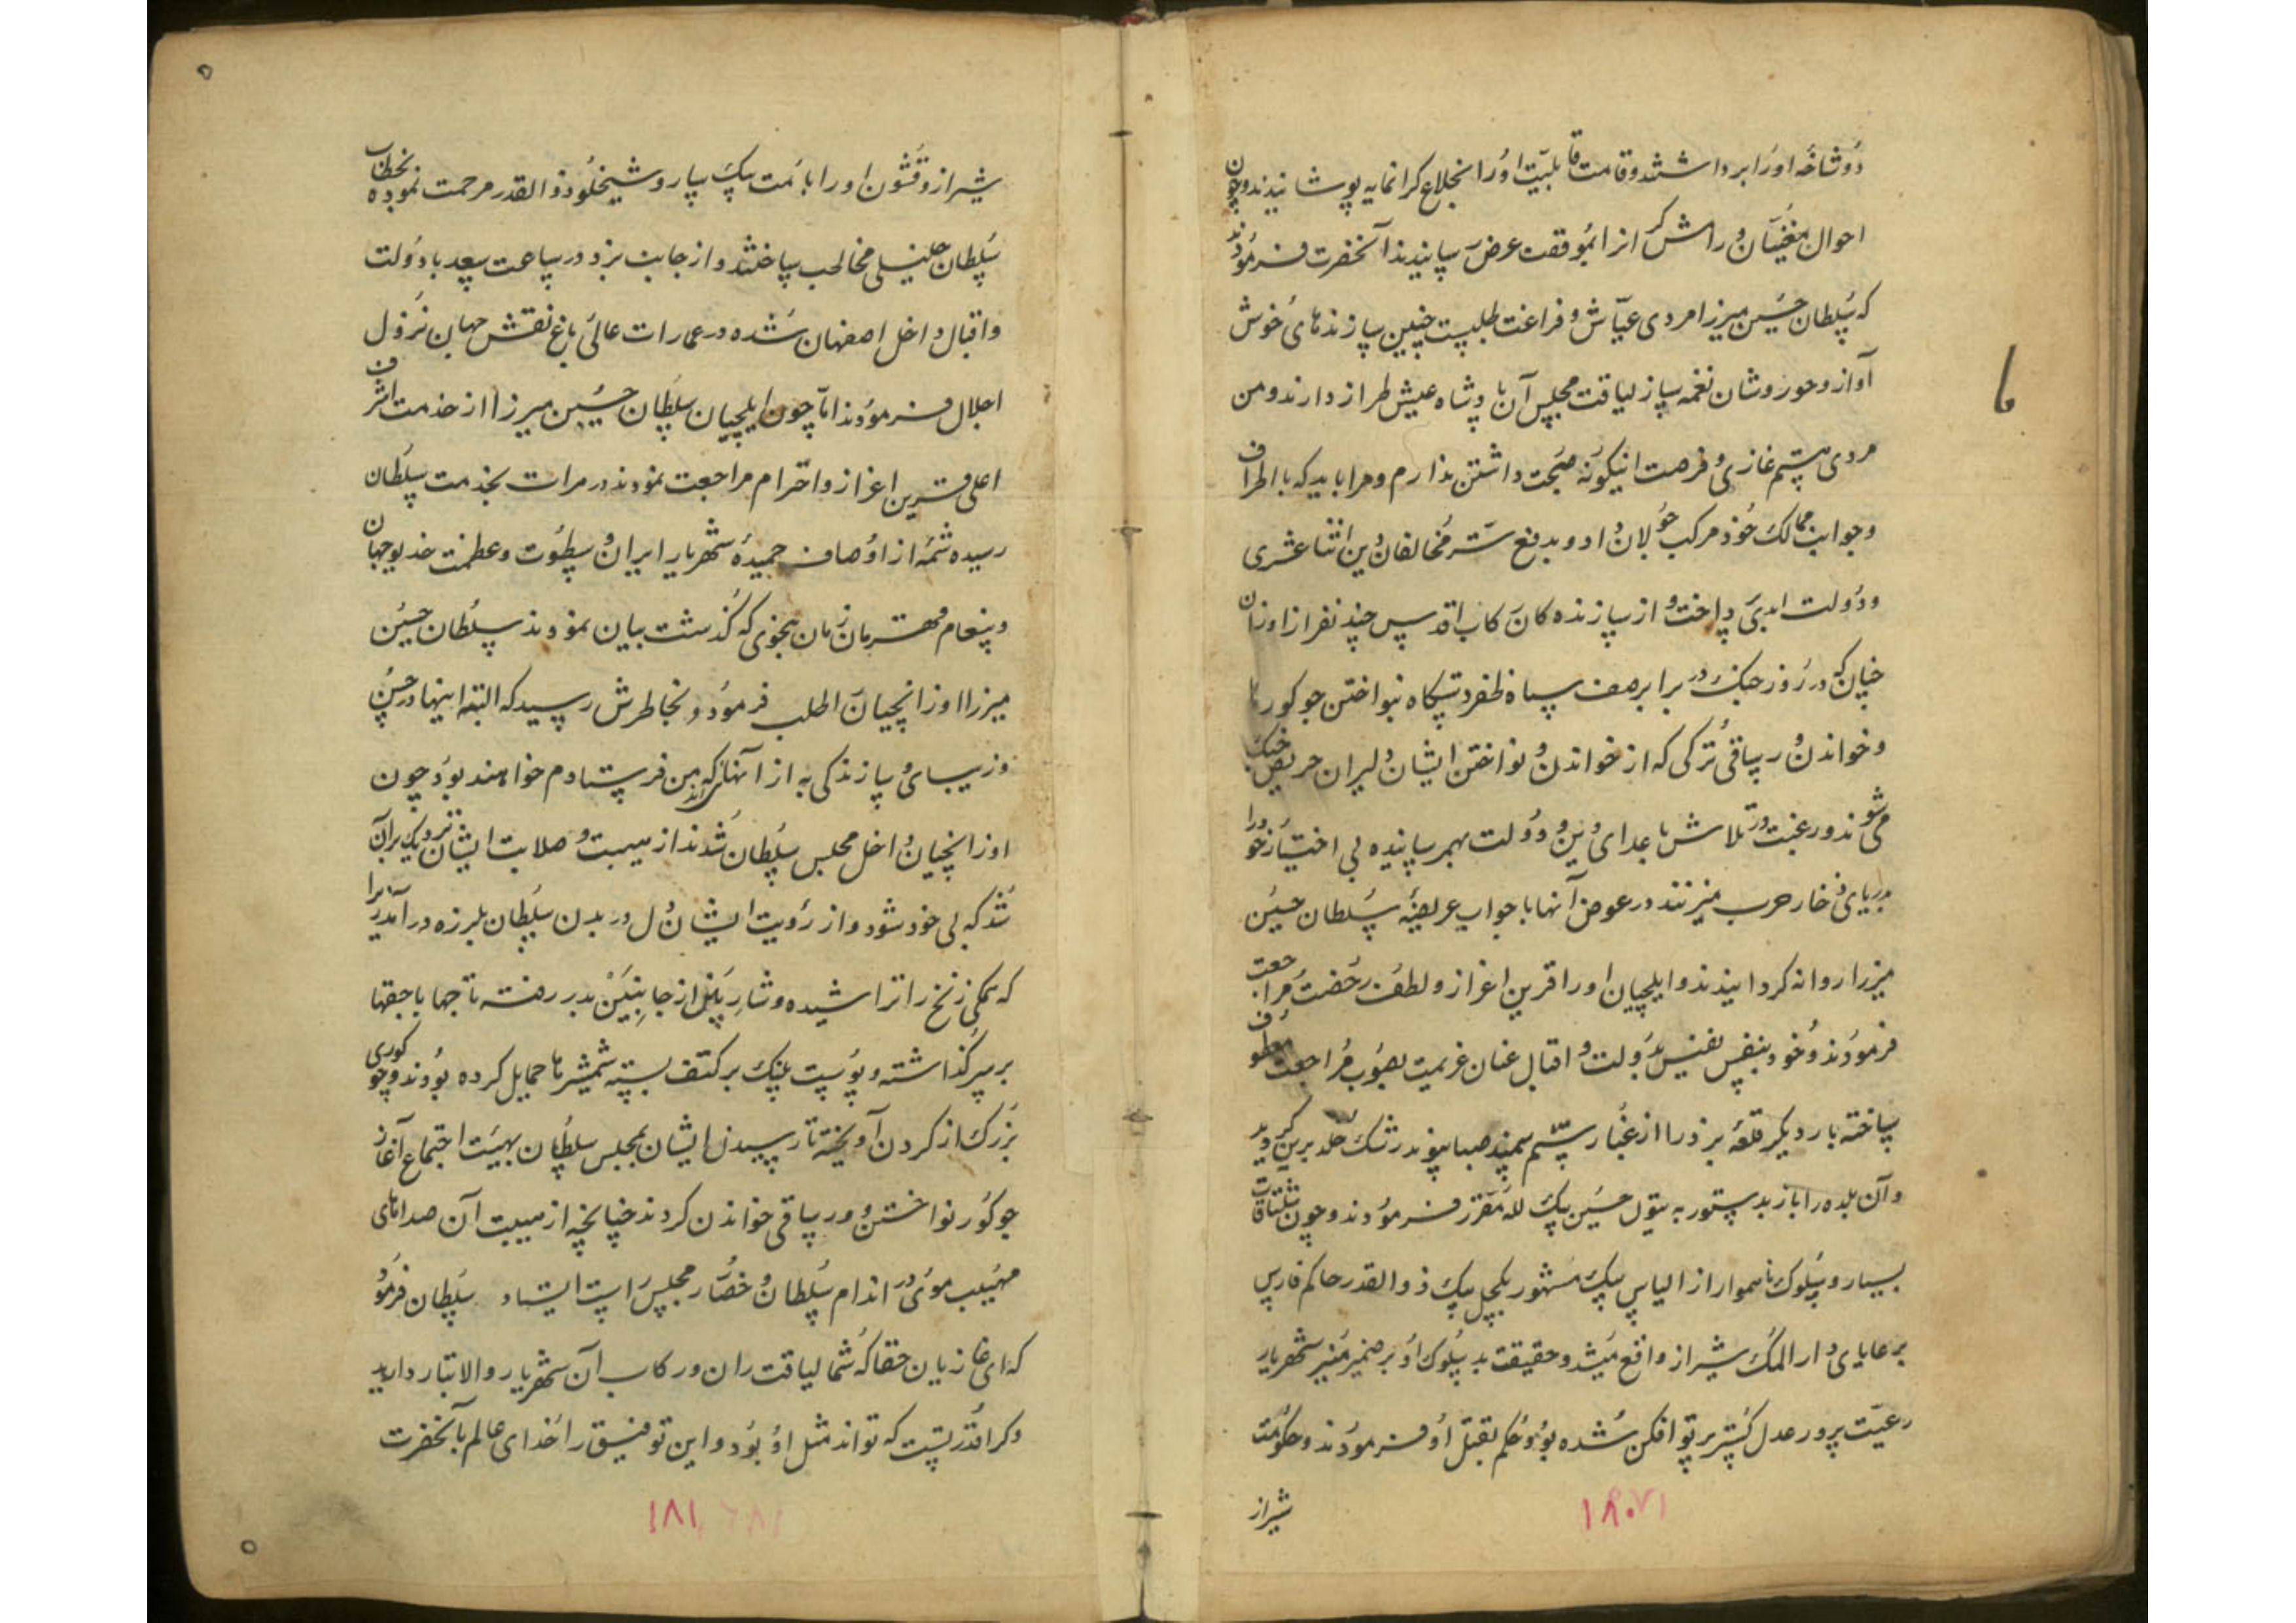 دوشاخه او را برداشتند و قامت قابلیت او را بخلاع کرانمایه پوشانیدند و چون
احوال مغنیان و رامشکر انرا بموقف عرض رسانیدند آنحضرت فرمودند
که سلطان حسین میرزا مردی عیاش و فراغت طلبست چنین سازندهای خوش
آواز و حور وشان نغمه ساز لیاقت مجلس آن پادشاه عیش طراز دارند و من
مردی هستم غازی و فرصت اینکونه صحبت داشتن ندارم و مرا باید که باطراف
و جوانب ممالک خود مرکب جولان داد و بدفع شر مخالفان دین اثنا عشری
و دولت ابدی پرداخت و از سازنده کان رکاب اقدس چند نفر از اوزان
چیان که در روز جنک در برابر صف سپاه ظفر دستکاه بنواختن جوکورها
و خواندن رساقی ترکی که از خواندن و نواختن ایشان دلیران حریص جنک
می شوند و رغبت در تلاش با عدای دین و دولت بهم رسانیده بی اختیار خود را
بدریای ذخار حرب میزنند در عوض آنها با جواب عریضهٔ سلطان حسین
میرزا روانه کردانیدند و ایلچیان او را قرین اعزاز و لطف رخصت مراجعت
فرمودند و خود بنفس نفیس بدولت و اقبال عنان عزیمت بصوب مراجعت معطوف
ساخته بار دیکر قلعهٔ یزد را از غبار سم سمند صبا پیوند رشک خلد برین کردید
و آن بلده را باز بدستور به تیول حسین بیک لله مقرر فرمودند و چون شلتاقات
بسیار و سلوک ناهموار از الیاس بیک مشهور بکچل بیک ذوالقدر حاکم فارس
برعایای دار الملک شیراز واقع میشد و حقیقت بد سلوک او بر ضمیر منیر شهریار
رعیت پرور عدل کستر پرتو افکن شده بود حکم بقتل او فرمودند و حکومت
شیراز
۱۸۰
شیراز و قشون او را بامت بیک سارو شیخلو ذوالقدر مرحمت نموده بخطاب
سلطان خلیلی مخاطب ساختند و از جانب یزد در ساعت سعد با دولت
و اقبال داخل اصفهان شده در عمارات عالی باغ نقش جهان نزول
اجلال فرمودند اما چون ایلچیان سلطان حسین میرزا از خدمت اشرف
اعلی قرین اعزاز و احترام مراجعت نمودند در هرات بخدمت سلطان
رسیده شمهٔ از اوصاف حمیدهٔ شهریار ایران و سطوت و عظمت خدیو جهان
و پیغام قهرمان زمان بنحوی که کذشت بیان نمودند سلطان حسین
میرزا اوزانچیان را طلب فرمود و بخاطرش رسید که البته اینها در حسن
و زیبای و سازندکی به از آنها که من فرستادم خواهند بود چون
اوزانچیان داخل مجلس سلطان شدند از هیبت و صلابت ایشان نزدیک بر آن
شد که بی خود شود و از رؤیت ایشان دل در بدن سلطان بلرزه در آمد زیرا
که همکی زنخ را تراشیده و شارپ از جانبین بدر رفته تاجها با جقها
بر سر کذاشته و پوست پلنک بر کتف بسته شمشیرها حمایل کرده بودند و جوکوری
بزرک از کردن آویخته تا رسیدن ایشان بمجلس سلطان بهیئت اجتماع آغاز
جوکور نواختن و رساقی خواندن کردند چنانچه از هیبت آن صداهای
مهیب موی در اندام سلطان و حضار مجلس راست ایستاد سلطان فرمود
که ای غازیان حقا که شما لیاقت ران و رکاب آن شهریار والاتبار دارید
و کرا قدرتست که تواند مثل او بود و این توفیق را خدای عالم بآنحضرت
۱۸۱